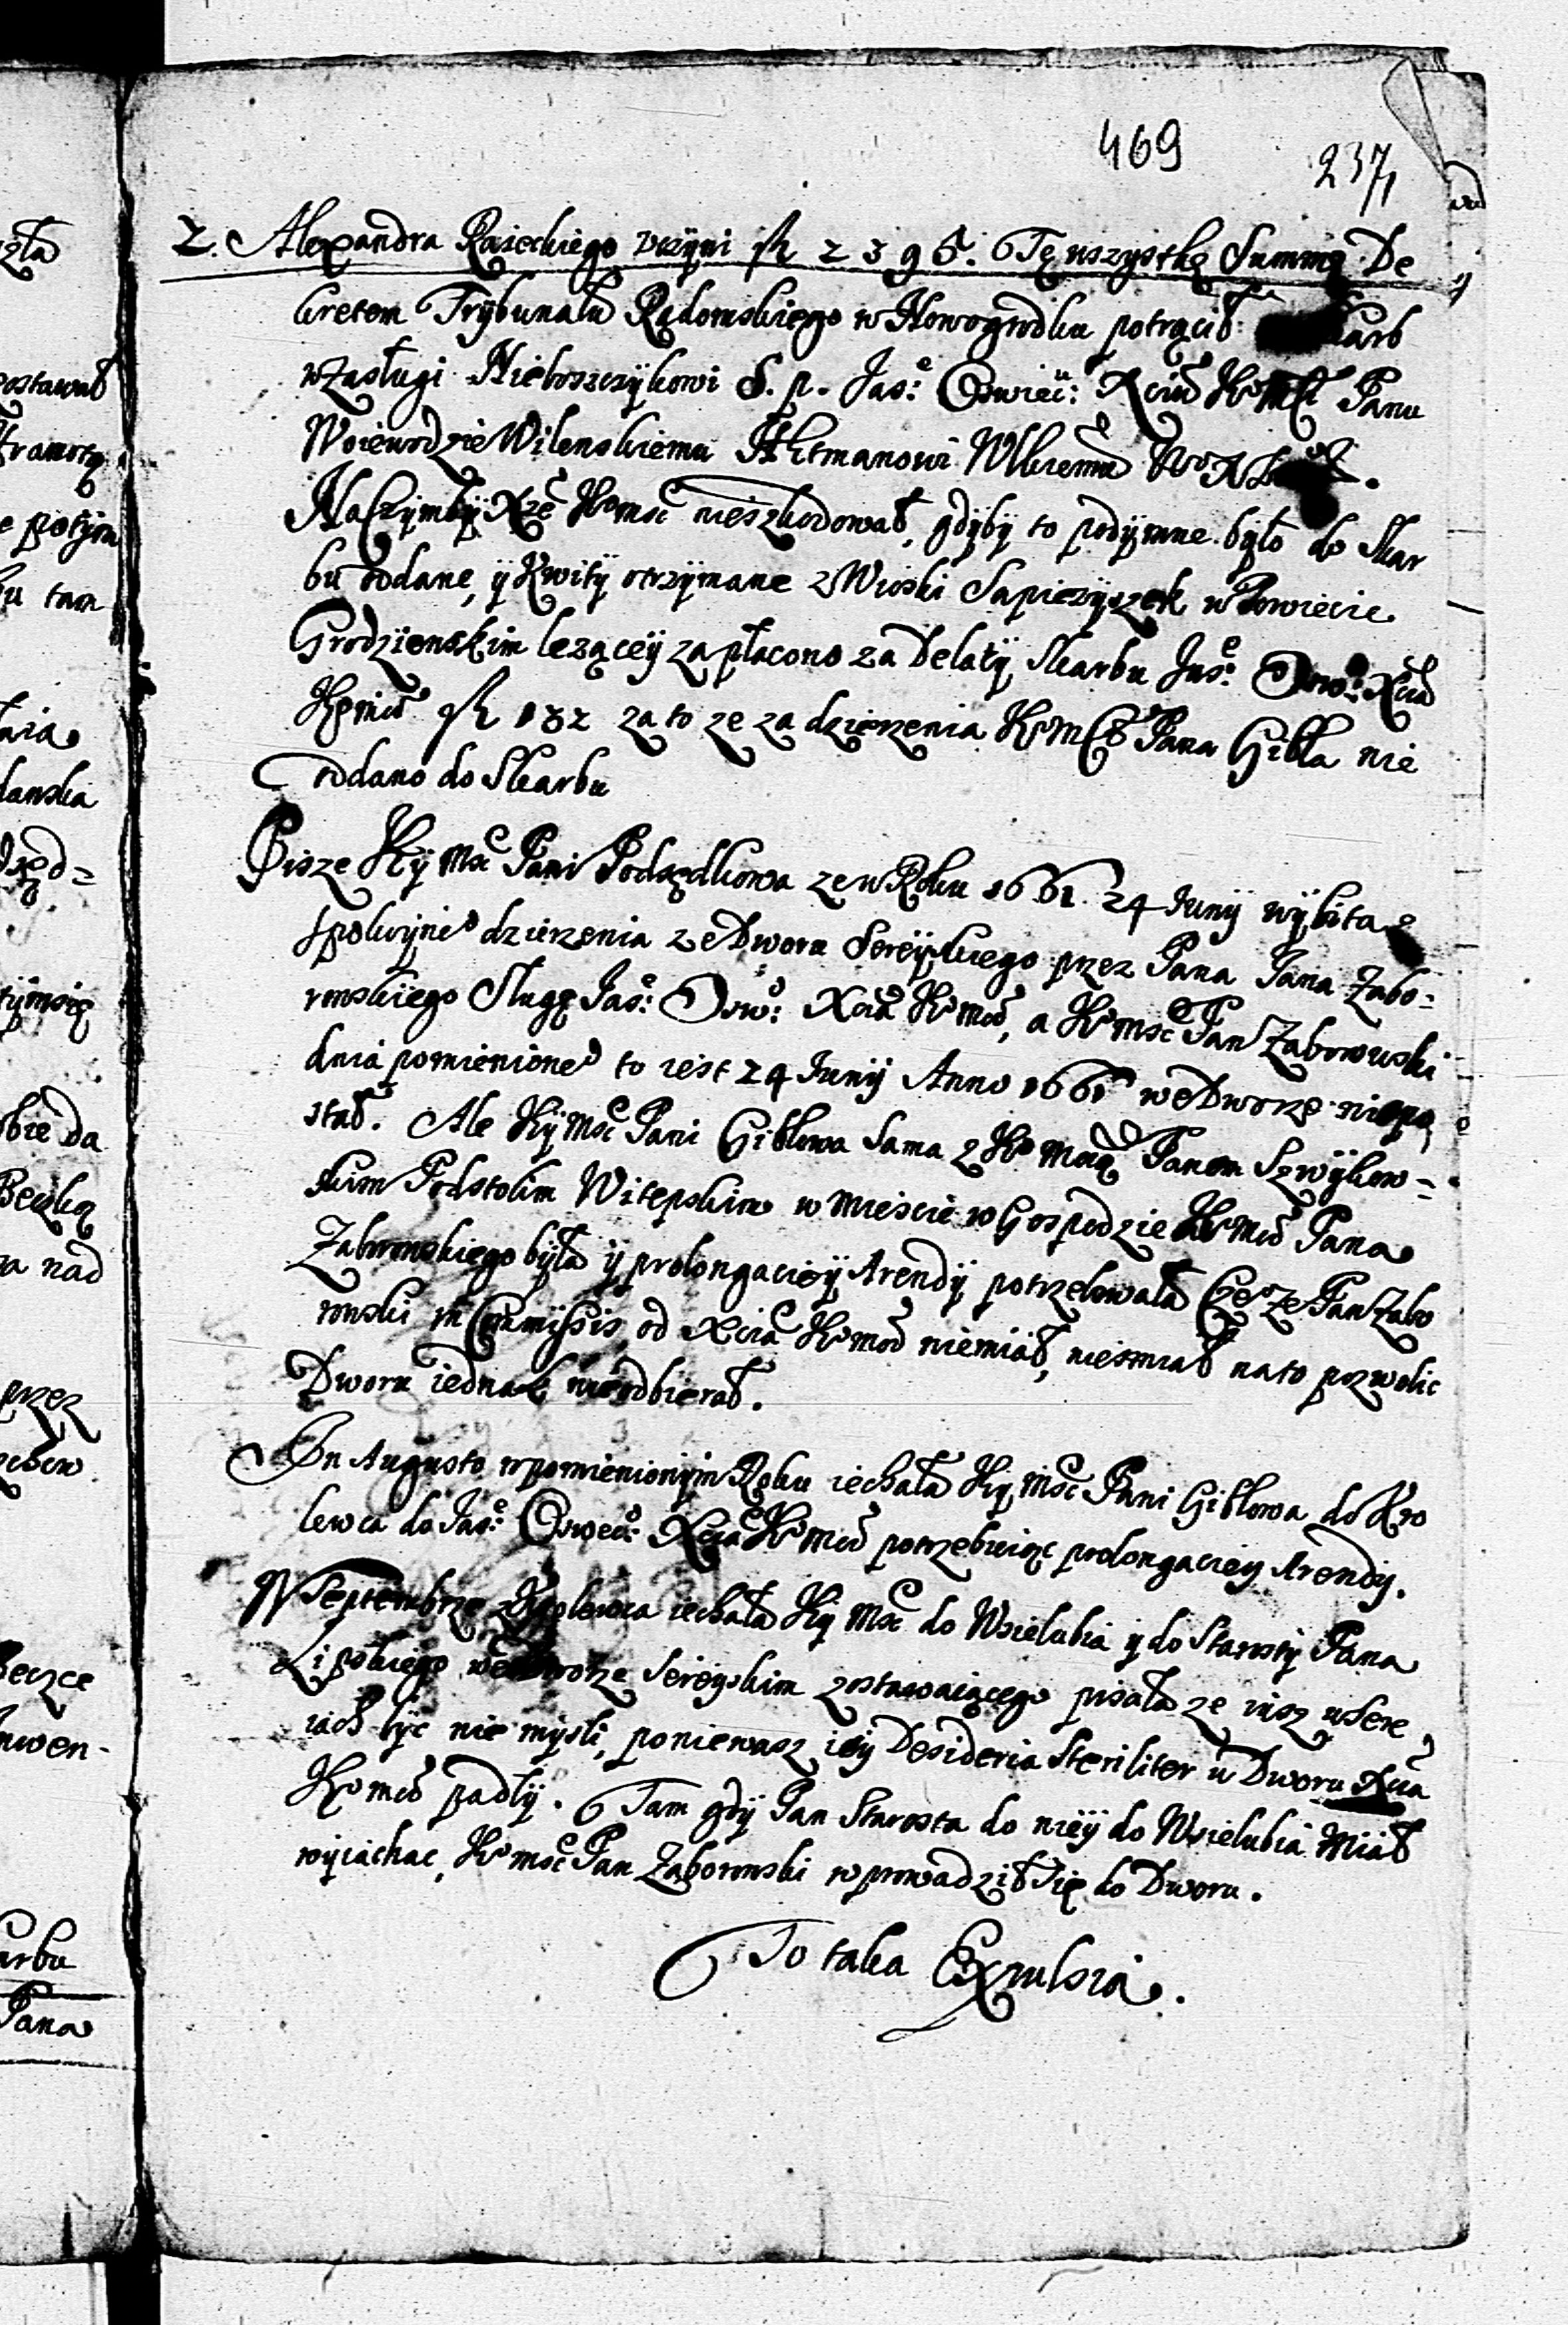 469
237
Z. Alexandra Rajeckiego uczyni fl 2395. Tę wszystkę Summę De
kretem Trybunału Radomskiego w Nowogrodku potrącił Skarb
w zasługi Nieboszczykowi S. p. Jas: Oświec: Xciu Jeo Msci Panu
Woiewodzie Wilenskiemu Hetmanowi Wlkiemu W. X. L.
Na czymby Xze Jeo Msc nieszkodował, gdyby to podymne było do Skar
bu oddane, ÿ Kwitÿ otrzÿmane z Wioski Sapieżÿszek w Powiecie
Grodzienskim lezącÿ zapłacono za Delatÿ Skarbu Jas: Osw: Xcia
Jeo mci fl 132 za to ze za dzierzenia Jeo Msci Pana Gibla nie
oddano do Skarbu
Pisze Jey Msc Pani Podsędkowa ze w Roku 1661. 24 Junÿ wÿbita z
spokoÿneo dzierzenia ze Dworu Sereÿskiego przez Pana Jana Zabo-
rowskiego Sługę Jas: Osw: Xcia Jeo mci, a Jeo msc Pan Zaborowski
dnia pomienioneo to iest 24 Junÿ Anno 1661 we Dworze niepo
stał. Ale Jey Msc Pani Giblowa Sama z Jeo Mcią Panem Szwÿkow-
skim Podstolim Witepskim w Miescie w Gospodzie Jeo Mci Pana
Zaborowskiego była ÿ prolongacieÿ Arendÿ potrzebowała Ze Pan Zabo
rowski in Commissis od Xcia Jeo mci niemiał, niesmiał na to pozwolic
Dworu iednak nieodbierał.
In Augusto w pomienionÿm Roku iechała Jey Msc Pani Giblowa do Kro
lewca do Jas: Oswec: Xcia Jeo Mci potrzebuiąc prolongacieÿ Arendÿ.
W Septembrze z Krolewca iechała Jey Msc do Wsielubia ÿ do Starostÿ Pana
Lipskiego we Dworze Sereÿskim zostawaiącego pisała ze iusz w Sere
iach bÿc nie mÿsli, poniewasz ieÿ Desideria Steriliter u Dworu Xcia
Jeo mci padłÿ. Tam gdÿ Pan Starosta do nieÿ do Wsielubia Miał
wÿiachac, Jeo msc Pan Zaborowski wprowadził Się do Dworu.
To taka Expulsia.